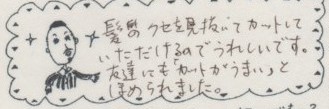 髪のクセを見抜いてカットして
いただけるのでうれしいです。
友達にも「カットがうまい」と
ほめられました。